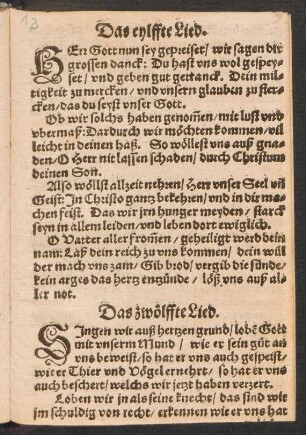 Das eylffte Lied.
HErr Gott nun sey gepreiset/ wir sagen dir
grossen danck: Du hast vns wol gespey-
set/ vnd geben gut getranck. Dein mil-
tigkeit zu mercken/ vnd vnsern glauben zu ster-
cken/ das du seyst vnser Gott.
Ob wir solchs haben genomen/ mit lust vnd
vbermaß: Dardurch wir möchten kommen/ vil
leicht in deinen haß. So wöllest vns auß gna-
den/ O Herr nit lassen schaden/ durch Christum
deinen Son.
Also wöllst allzeit nehren/ Herr vnser Seel vñ
Geist: In Christo gantz bekehren/ vnd in dir ma-
chen feist. Das wir jrn hunger meyden/ starck
seyn in allem leiden/ vnd leben dort ewiglich.
O Vatter aller frommen/ geheiligt werd dein
nam: Laß dein reich zu vns kommen/ dein will
der mach vns zam/ Gib brod/ vergib die sünde/
kein arges das hertz entzünde/ löß vns auß al-
ler not.
Das zwölffte Lied.
SIngen wir auß hertzen grund/ lobē Gott
mit vnserm Mund/ wie er sein güt an
vns beweist/ so hat er vns auch gespeist/
wie er Thier vnd Vögel ernehrt/ so hat er vns
auch beschert/ welchs wir jetzt haben verzert.
Loben wir jn als seine knecht/ das sind wir
jm schuldig von recht/ erkennen wie er vns hat